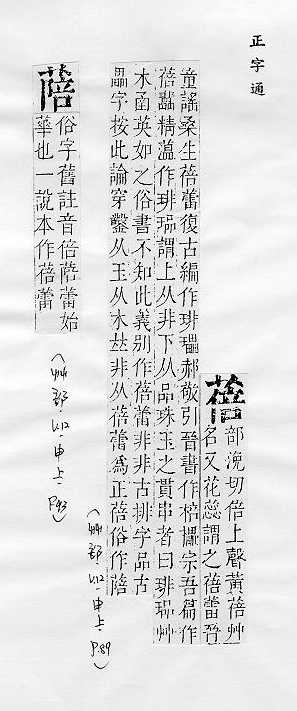 正字通
蓓
部浼切倍上聲黃蓓艸
名又花蕊謂之蓓蕾晉
童謠桑生蓓蕾復古編作琲瓃郝敬引晉書作棓欙宗吾篇作
蓓蕾精蕰作琲瑞謂上从非下从品珠玉之貫串者曰琲瑞艸
木函英如之俗書不知此義別作蓓蕾非非古排字品古
畾字按此論穿鑿从玉从木𠀤非从蓓蕾爲正蓓俗作䔒
(艸部.k12.申上.P.89)
䔒
俗字舊註音倍䔒蕾始
華也一說本作蓓蕾
(艸部.k12.申上.P.93)